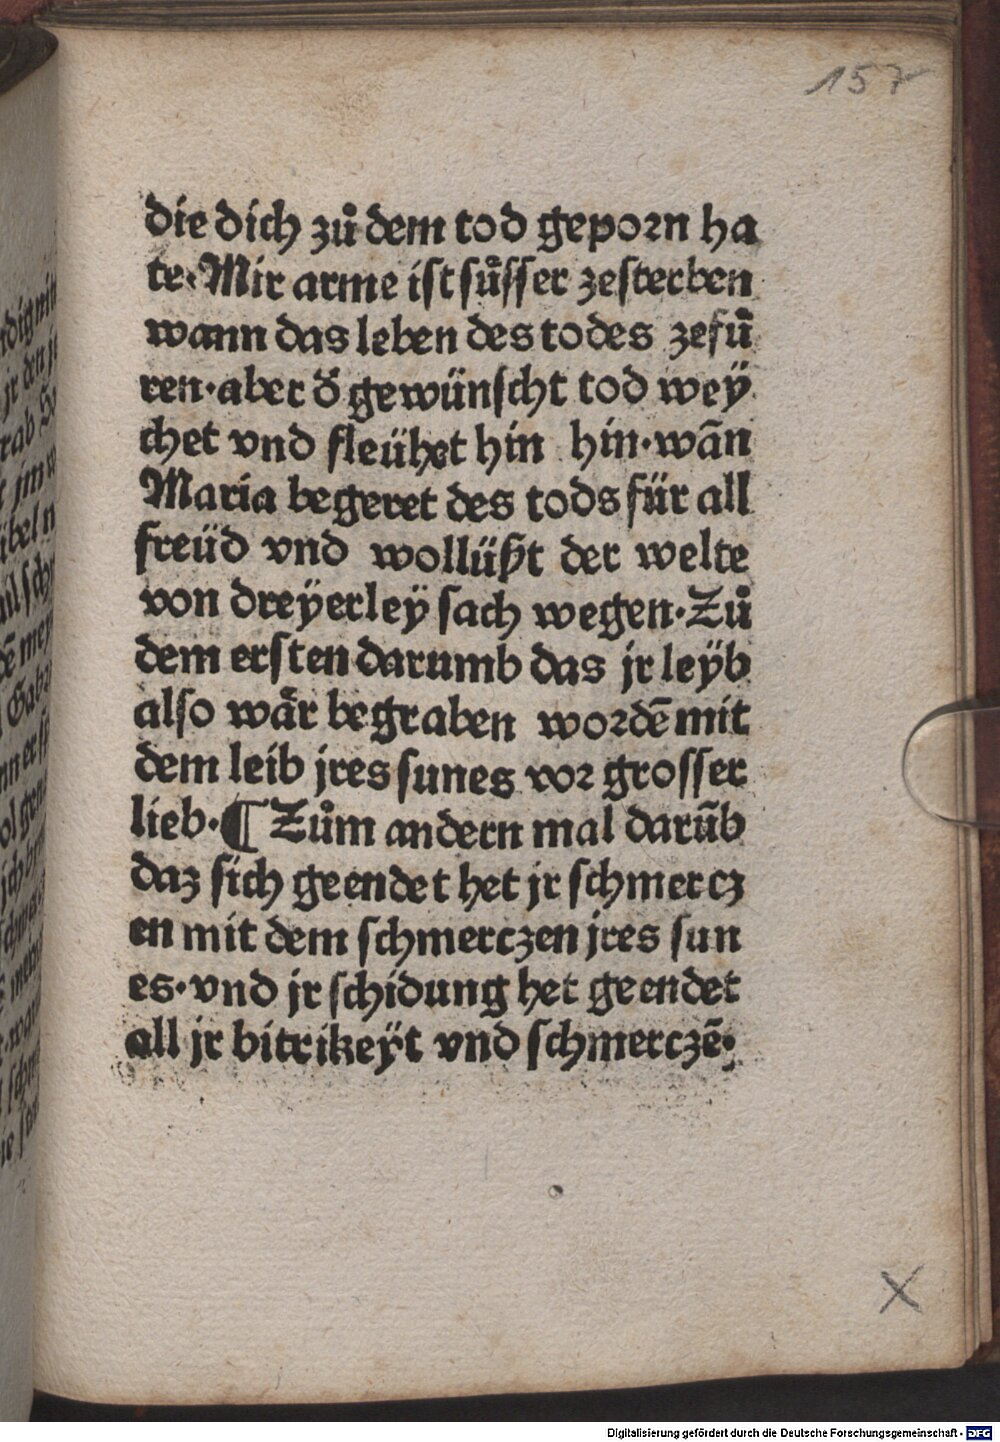 157
die dich zů dem tod geporn ha
te·Mir arme ist sůsser zesterben
wann das leben des todes zefů
ren·aber d̄ gewünscht tod wey
chet vnd fleühet hin hin·wān
Maria begeret des tods für all
freüd vnd wollüßt der welte
von dreÿerleÿ sach wegen·Zů
dem ersten darumb das jr leÿb
also wår begraben wordē mit
dem leib jres sunes vor grosser
lieb·¶ Zům andern mal darūb
daz sich geendet het jr schmercz
en mit dem schmerczen jres sun
es·vnd jr schidung het geendet
all jr bitrikeÿt vnd schmerczē·
X
Digitalisierung gefördert durch die Deutsche Forschungsgemeinschaft - DFG